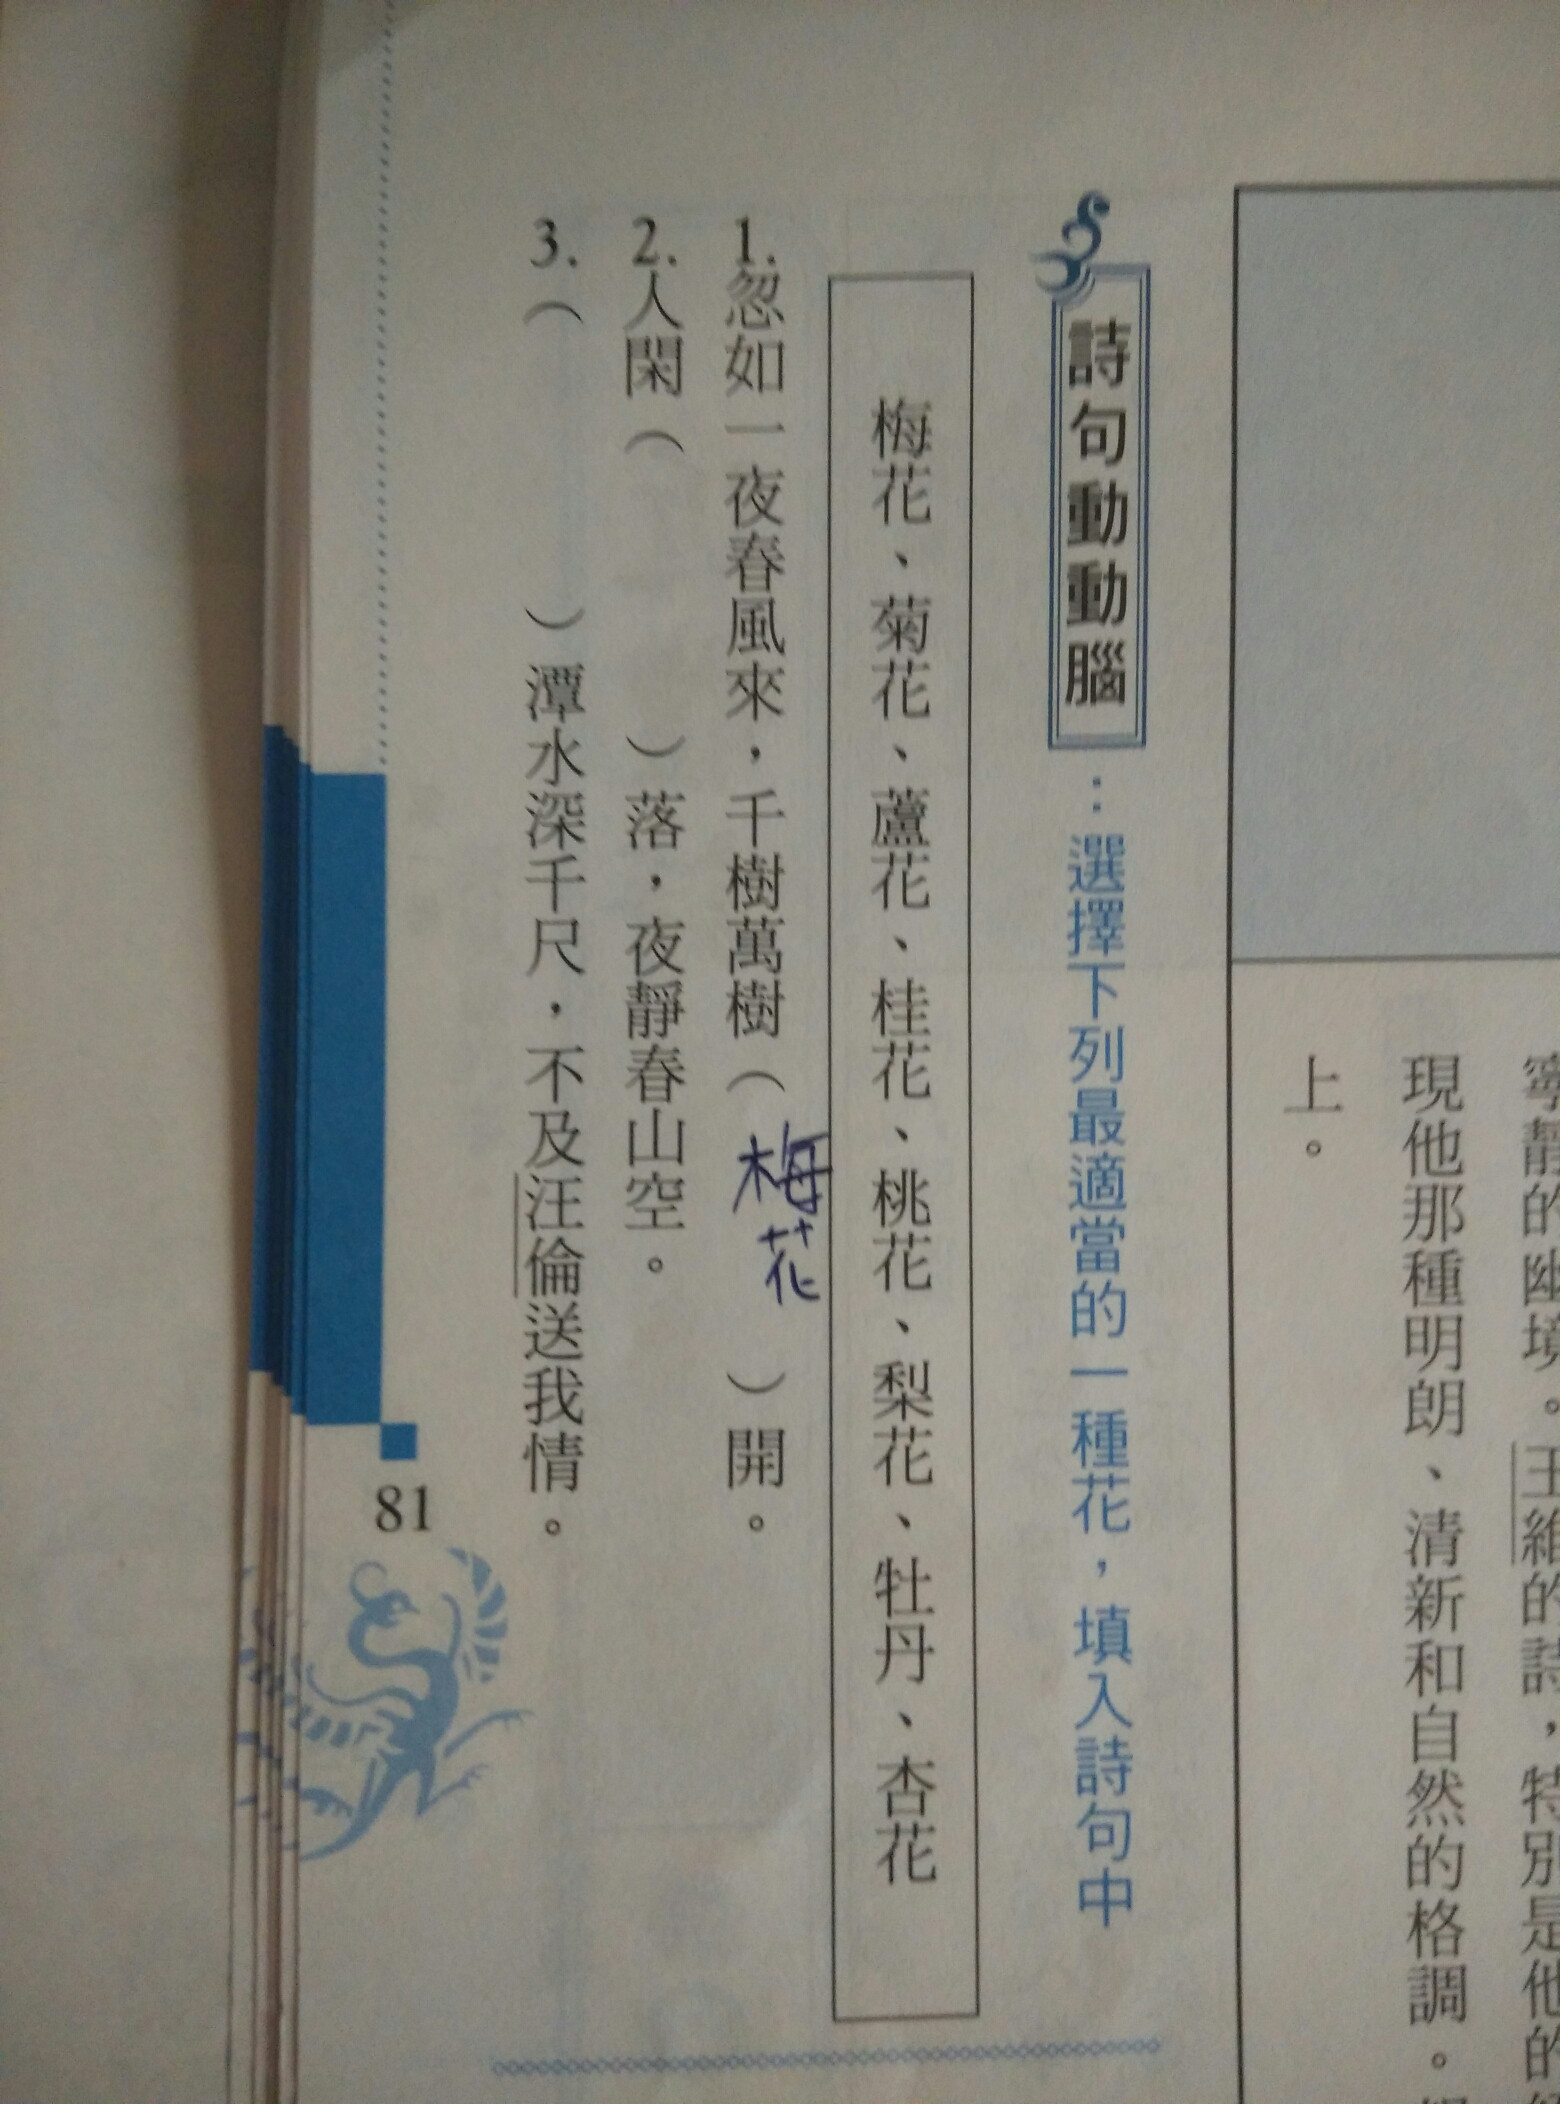 寧靜的幽境。王維的詩，特別是他的
現他那種明朗、清新和自然的格調。
上。
詩句動動腦：選擇下列最適當的一種花，填入詩句中
梅花、菊花、蘆花、桂花、桃花、梨花、牡丹、杏花
1.忽如一夜春風來，千樹萬樹（梅花）開。
2.人閑（　）落，夜靜春山空。
3.（　）潭水深千尺，不及汪倫送我情。
81